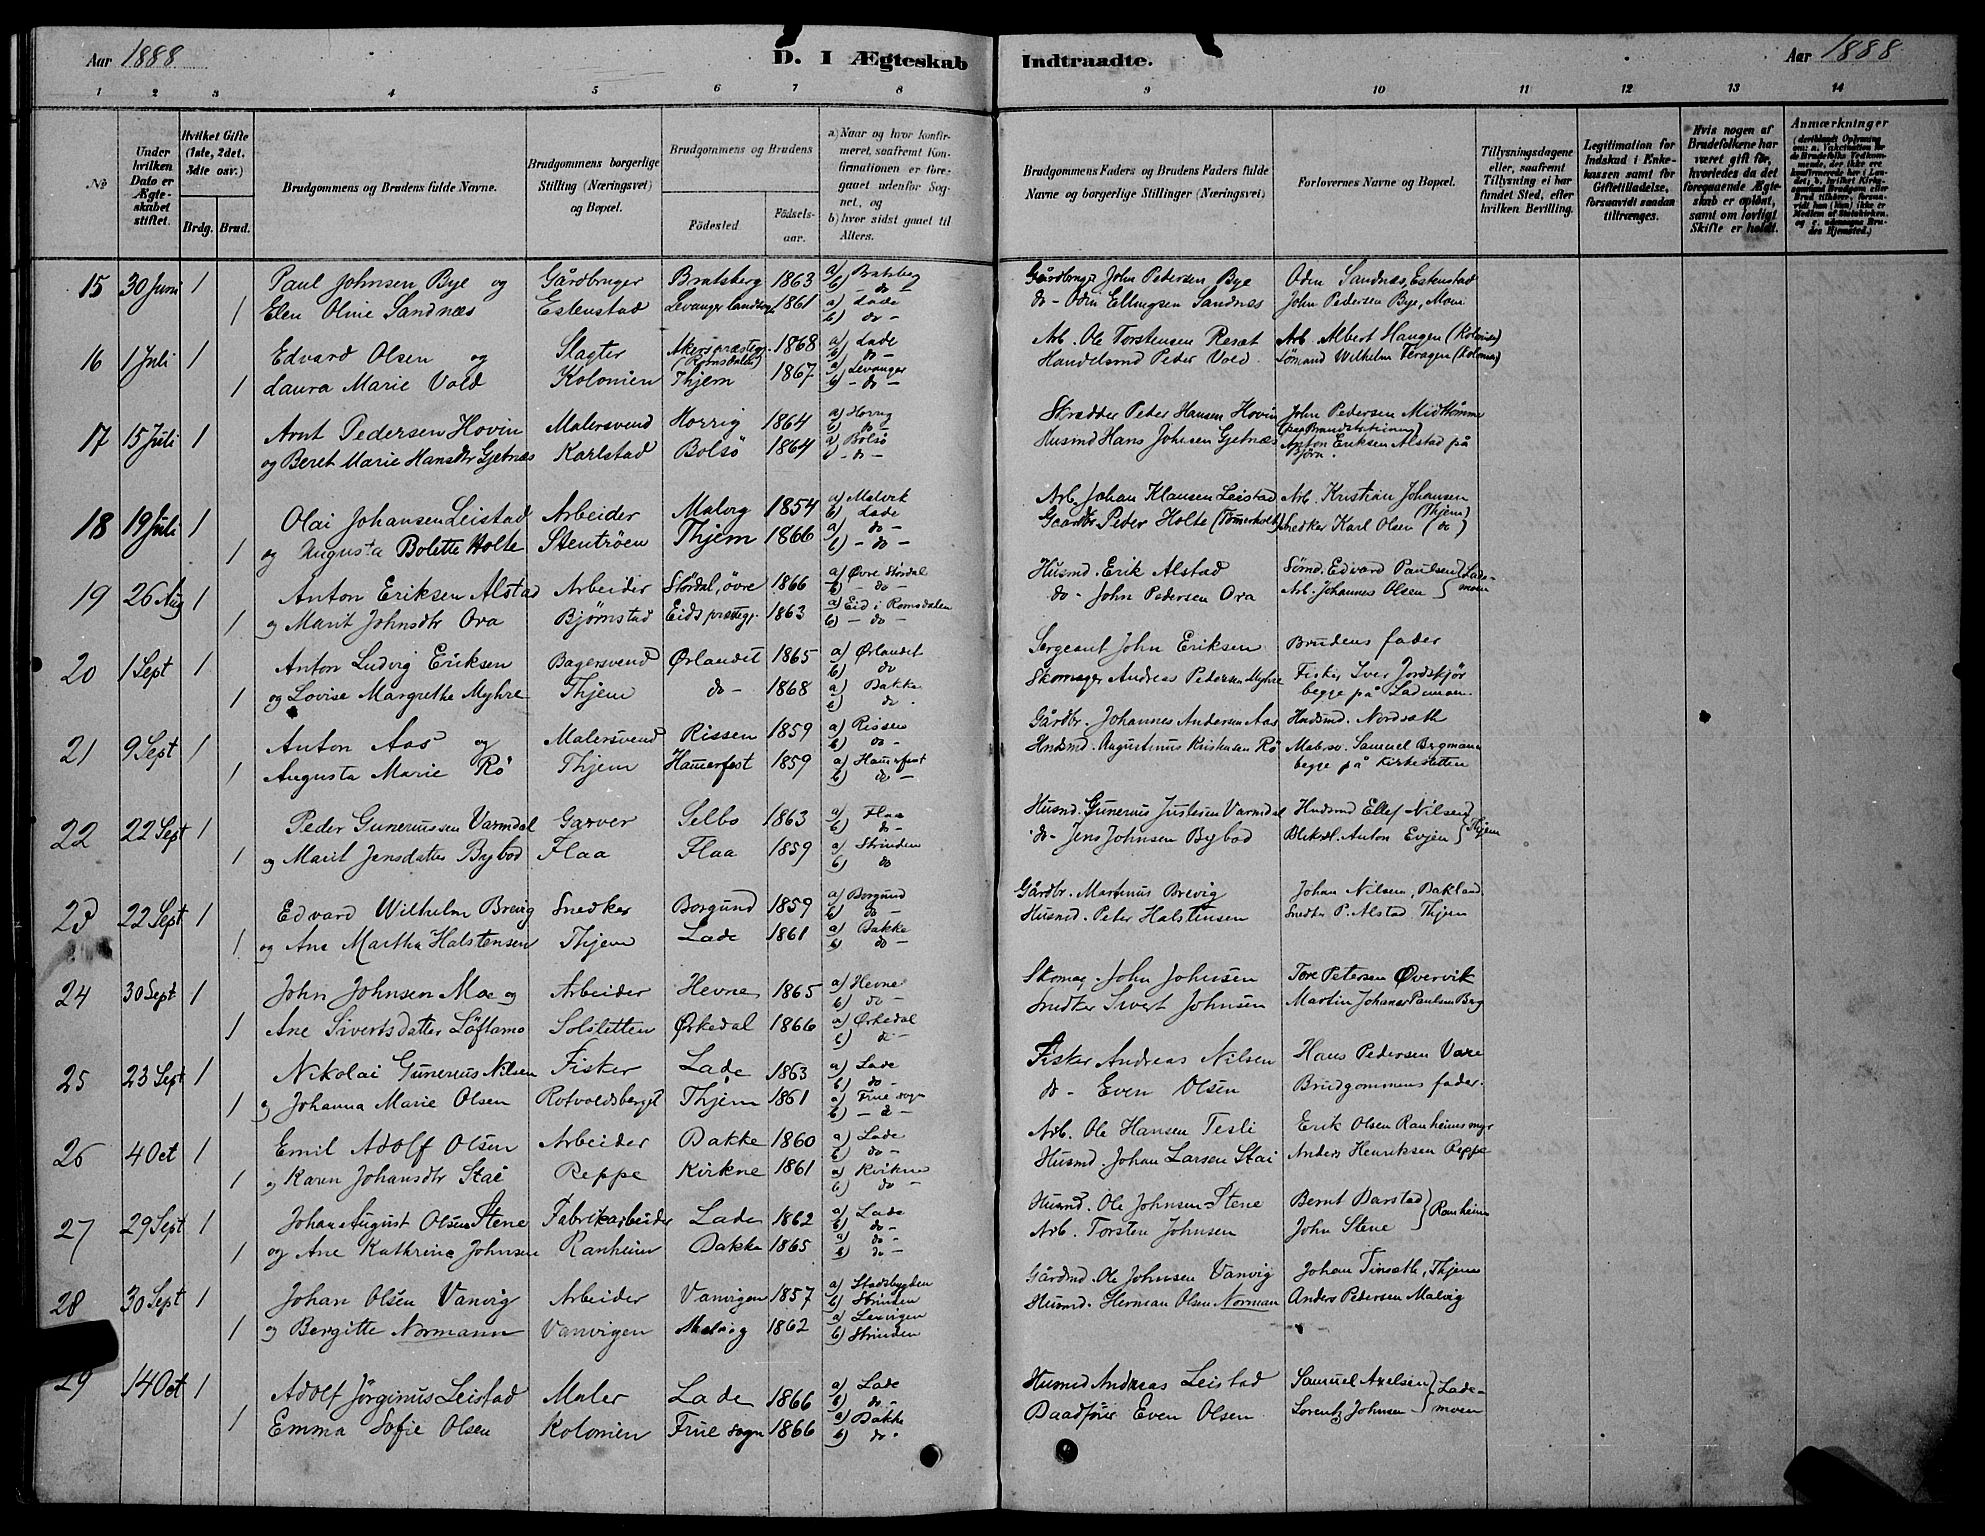 Aar 1888
D. I Ægteskab Indtraadte.
Aar 1888
1 2 3 4 5 6 7 8 9 10 11 12 13 14
No
Under hvilken Dato er Ægteskabet stiftet.
Hvilket Gifte (1ste, 2det, 3die osv.)
Brdg. Brud.
Brudgommens og Brudens fulde Navne.
Brudgommens borgerlige Stilling (Næringsvei) og Bopæl.
Brudgommens og Brudens
Födested. Födsels-aar.
a) Naar og hvor konfirmeret, saafremt Konfirmationen er foregaaet udenfor Sognet, og
b) hvor sidst gaaet til Alters.
Brudgommens Faders og Brudens Faders fulde Navne og borgerlige Stillinger (Næringsvei)
Forlovernes Navne og Bopæl.
Tillysningsdagene eller, saafremt Tillysning ei har fundet Sted, efter hvilken Bevilling.
Legitimation for Indskud i Enkekassen samt for Giftetilladelse, forsaavidt saadan tiltrænges.
Hvis nogen af Brudefolkene har været gift før, hvorledes da det foregaaende Ægteskab er opløst, samt om lovligt Skifte er holdt.
Anmærkninger
15 30 Juni 1 Paul Johnsen Bye og Gårdbruger Bratsberg 1863 a) Batsberg b) do Gårdbruger John Pedersen Bye Oden Sandnæs, Estenstad
1 Elen Oline Sandnæs Estenstad Levanger Landsogn 1861 a) Lade b) do - do - Odin Ellingsen Sandnæs John Pedersen Bye, Moen
16 1 Juli 1 Edvard Olsen og Slagter Akers præstegj. (Romsdalen) 1868 a) Lade b) do - Arb. Ole Torstensen Resæt Arb. Albert Haugen (Kolonien)
1 Laura Marie Vold Kolonien Thjem 1867 a) Levanger b) - do - Handelsmd Peter Vold Sömand Wilhelm Feragen (Kolonien)
17 15 Juli 1 Arnt Pedersen Hovin Malersvend Horrig 1864 a) Horrig b) do Skrædder Peter Hansen Hovin John Pedersen Midthømme (paa Brandstationing)
og Beret Marie Hansdtr Gjetnæs Karlstad Bolsö 1864 a) Bolsö - do - Husmd Hans Johnsen Gjetnæs Anton Eriksen Alstad på Bjørn.
18 19 Juli 1 Olai Johansen Leistad Arbeider Malvig 1854 a) Malvik b) Lade Arb. Johan Klausen Leistad Arb. Kristian Johansen (Thjem)
1 og Augusta Bolette Holte Stentrøen Thjem 1866 a) do - b) - do - Gaardbr Peter Holte (Tömerholt) Snedker Karl Olsen (do)
19 26 Aug 1 Anton Eriksen Alstad Arbeider Stördal, övre 1866 a) Øvre Stördal b) - do Husmd. Erik Alstad Sömd. Edvard Paulsen } Lade-
1 og Marit Johnsdtr Ora Bjørnstad Eids præstegj. 1863 a) Eid i Romsdalen b) - do - do - John Pedersen Ora Arb. Johannes Olsen } moen
20 1 Sept 1 Anton Ludvig Eriksen Bagersvend Ørlandet 1865 a) Ørlandet b) do Sergeant John Eriksen Brudens fader
1 og Lovise Margrethe Myhre Thjem do - 1868 a) Bakke b) do. Skomager Andreas Pedersen Myhre Fisker Iver Jordskjör begge på Lademoen
21 9 Sept 1 Anton Aas og Malersvend Rissen 1859 a) Rissen b) do - Gårdbr. Johannes Andersen Aas Husmd. Nordsæth
1 Augusta Marie Rö Thjem Hamerfest 1859 a) Hamerfest b) do - Husmd. Augustinus Kristensen Rö Malersv. Samuel Bergmann begge på Kirkesletten
22 22 Sept 1 Peder Gunerussen Varmdal Garver Selbo 1863 a) Flaa b) do - Husmd. Gunerus Justesen Varmdal Husmd Ellef Nilsen } Thjem
1 og Marit Jensdatter Bybod Flaa Flaa 1859 a) Strinden b) do - do - Jens Johnsen Bybod Bliksl. Anton Evjen
23 22 Sept 1 Edvard Wilhelm Brevig Snedker Borgund 1859 a) Borgund b) do - Gårdbr. Martinus Brevig Johan Nilsen, Bakland
1 og Ane Martha Halstensen Thjem Lade 1861 a) Bakke b) do - Husmd. Peter Halstensen Snedker P. Alstad Thjem
24 30 Sept 1 John Johnsen Moe og Arbeider Hevne 1865 a) Hevne b) do - Skomag. John Johnsen Tore Petersen Øvervik
1 Ane Sivertsdatter Löftamo Solsletten Ørkedal 1866 a) Ørkedal b) do - Snedker Sivert Johnsen Martin Johanes Paulsen Berg
25 23 Sept 1 Nikolai Gunerius Nilsen Fisker Lade 1863 a) Lade b) do - Fisker Andreas Nilsen Hans Pedersen Vare
1 og Johanna Marie Olsen Rotvoldsberget Thjem 1861 a) Frue sogn b) - d - do - Even Olsen Brudgommens fader.
26 4 Oct 1 Emil Adolf Olsen Arbeider Bakke 1860 a) Lade b) do - Arb. Ole Hansen Tesli Erik Olsen Ranheimsmyr
1 og Karen Johansdtr Stai Reppe Kvikne 1861 a) Kvikne b) do - Husmd. Johan Larsen Stai Anders Henriksen Reppe
27 29 Sept 1 Johan August Olsen Stene Fabrikarbeider Lade 1862 a) Lade b) do - Husmd. Ole Johnsen Stene Bernt Barstad } Ranheim
1 og Ane Kathrine Johnsen Ranheim Bakke 1865 a) do - b) do - Arb. Torsten Johnsen John Stene
28 30 Sept 1 Johan Olsen Vanvig Arbeider Vanvigen 1857 a) Stadsbygden b) Strinden Gårdmd. Ole Johnsen Vanvig Johan Tinsæth, Thjem
1 og Bergitte Normann Vanvigen Malvig 1862 a) Lexvigen b) Strinden Husmd. Herman Olsen Norman Anders Pedersen Malvig
29 14 Oct 1 Adolf Jörginus Leistad Maler Lade 1866 a) Lade b) do - Husmd Andreas Leistad Samuel Axelsen } Lade-
1 Emma Sofie Olsen Kolonien Frue sogn 1866 a) Bakke b) do. Baadförer Even Olsen Lorentz Johnsen } moen